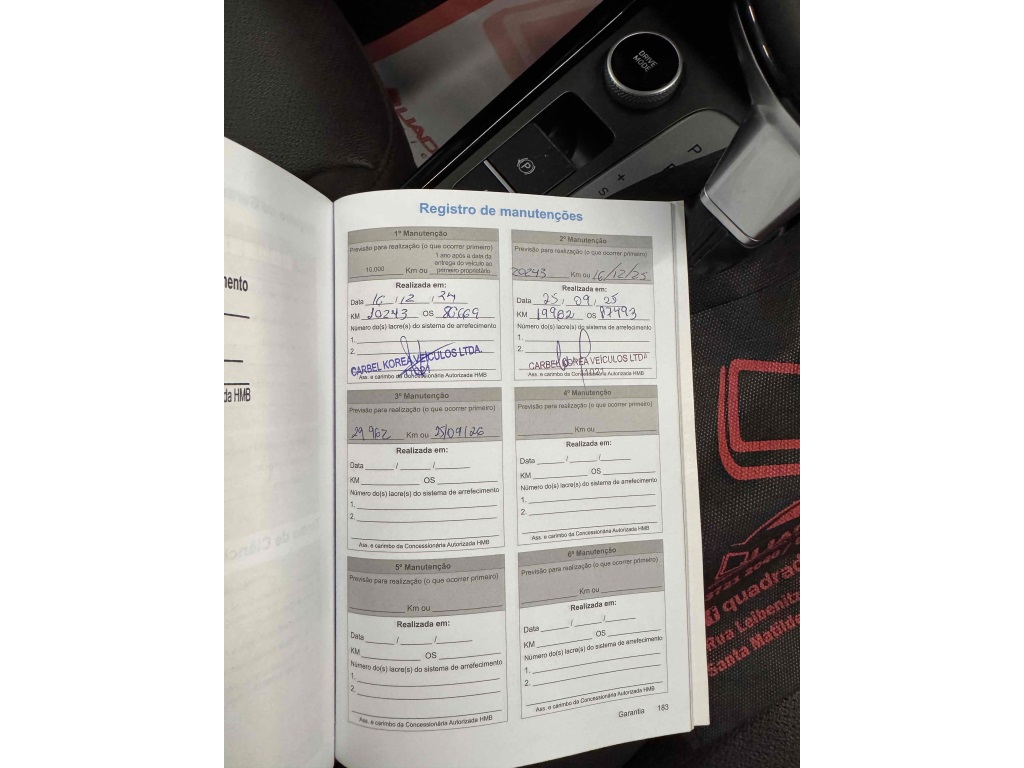 DRIVE
MODE
P
P
+
S
nento
da HMB
Registro de manutenções
1ª Manutenção
Previsão para realização (o que ocorrer primeiro)
10.000 Km ou 1 ano após a data da entrega do veículo ao primeiro proprietário
Realizada em:
Data 16 / 12 / 24
KM 10243 OS 86669
Número do(s) lacre(s) do sistema de arrefecimento
1.
2.
CARBEL KOREA VEÍCULOS LTDA.
Ass. e carimbo da Concessionária Autorizada HMB
2ª Manutenção
Previsão para realização (o que ocorrer primeiro)
20243 Km ou 16/12/25
Realizada em:
Data 25 / 09 / 25
KM 19962 OS 87493
Número do(s) lacre(s) do sistema de arrefecimento
1.
2.
CARBEL KOREA VEÍCULOS LTDA
Ass. e carimbo da Concessionária Autorizada HMB
3ª Manutenção
Previsão para realização (o que ocorrer primeiro)
29 962 Km ou 25/09/26
Realizada em:
Data / /
KM OS
Número do(s) lacre(s) do sistema de arrefecimento
1.
2.
Ass. e carimbo da Concessionária Autorizada HMB
4ª Manutenção
Previsão para realização (o que ocorrer primeiro)
Km ou
Realizada em:
Data / /
KM OS
Número do(s) lacre(s) do sistema de arrefecimento
1.
2.
Ass. e carimbo da Concessionária Autorizada HMB
5ª Manutenção
Previsão para realização (o que ocorrer primeiro)
Km ou
Realizada em:
Data / /
KM OS
Número do(s) lacre(s) do sistema de arrefecimento
1.
2.
Ass. e carimbo da Concessionária Autorizada HMB
6ª Manutenção
Previsão para realização (o que ocorrer primeiro)
Km ou
Realizada em:
Data / /
KM OS
Número do(s) lacre(s) do sistema de arrefecimento
1.
2.
Ass. e carimbo da Concessionária Autorizada HMB
Garantia 183
quadrad
Rua Leibenitz
Santa Matilde